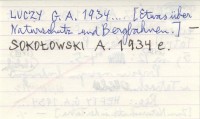 LUCZY G. A. 1934... [Etwas über
Naturschutz und Bergbahnen.] —
SOKOŁOWSKI A. 1934 e.